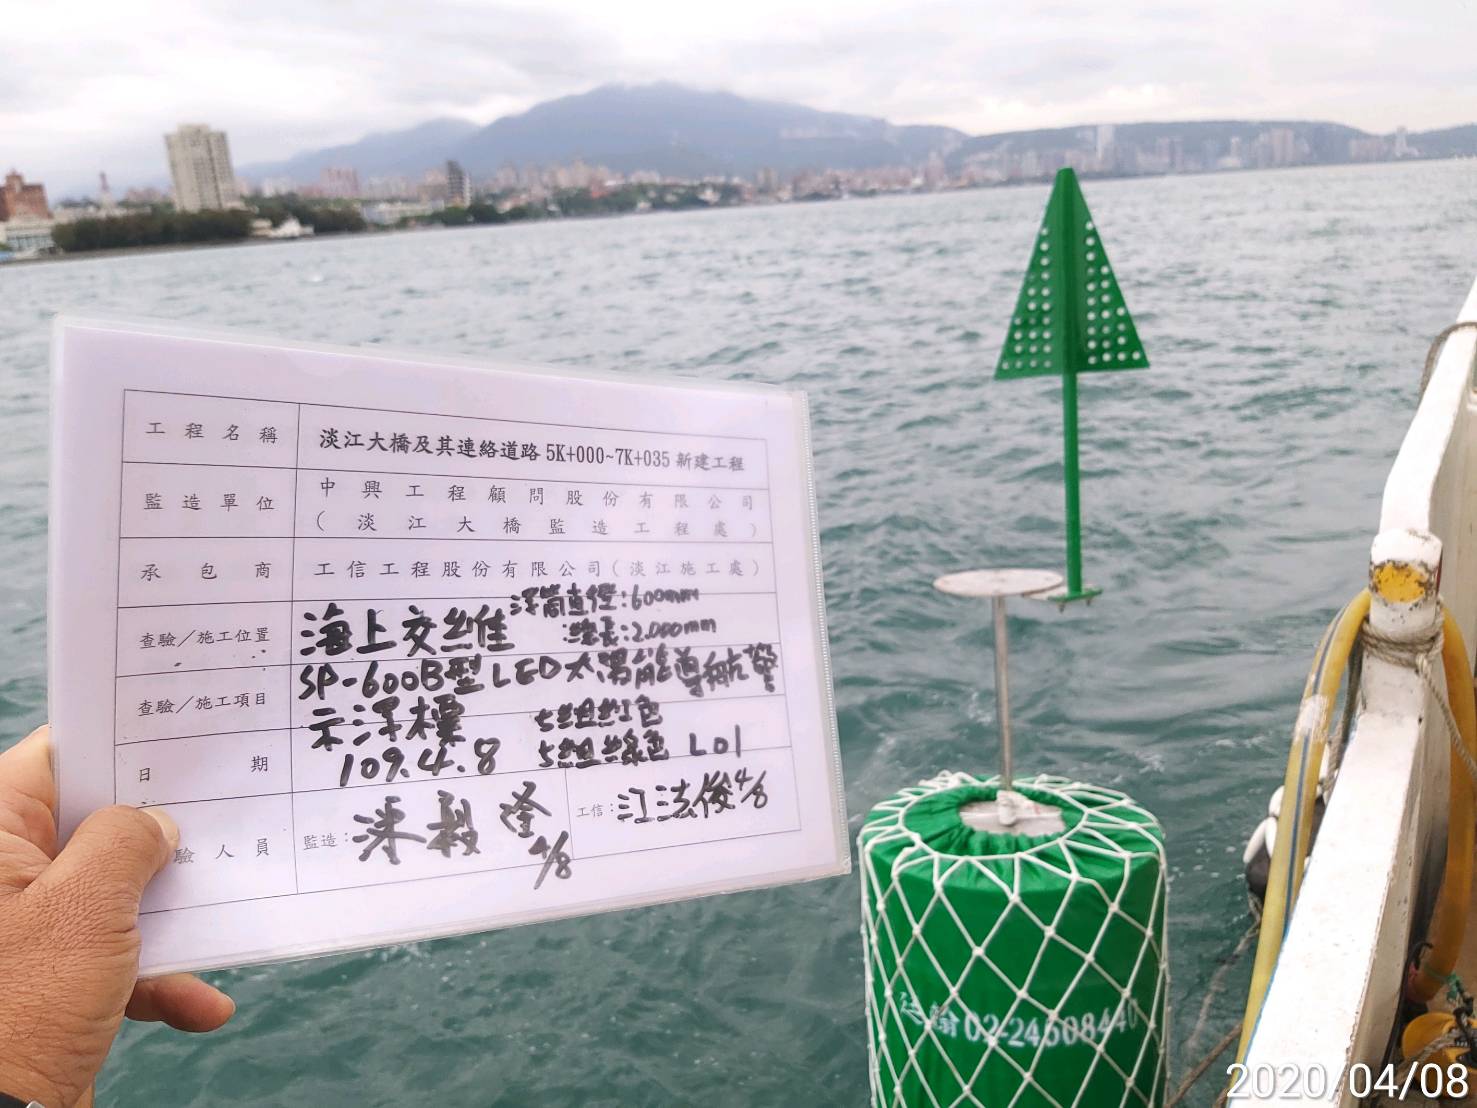 工程名稱
淡江大橋及其連絡道路 5K+000~7K+035 新建工程
監造單位
中興工程顧問股份有限公司
(淡江大橋監造工程處)
承包商
工信工程股份有限公司(淡江施工處)
查驗/施工位置
海上交維
浮筒直徑:600mm
總長:2,000mm
查驗/施工項目
SP-600B型LED太陽能導航警
示浮標
5組紅色
5組綠色 L01
日期
109.4.8
驗人員
監造:
毅
4/8
工信:
江法俊 4/8
02-24608440
2020/04/08